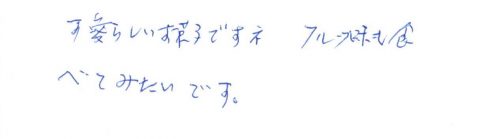 可愛らしいお菓子ですネ フルーツ味も食
べてみたいです。